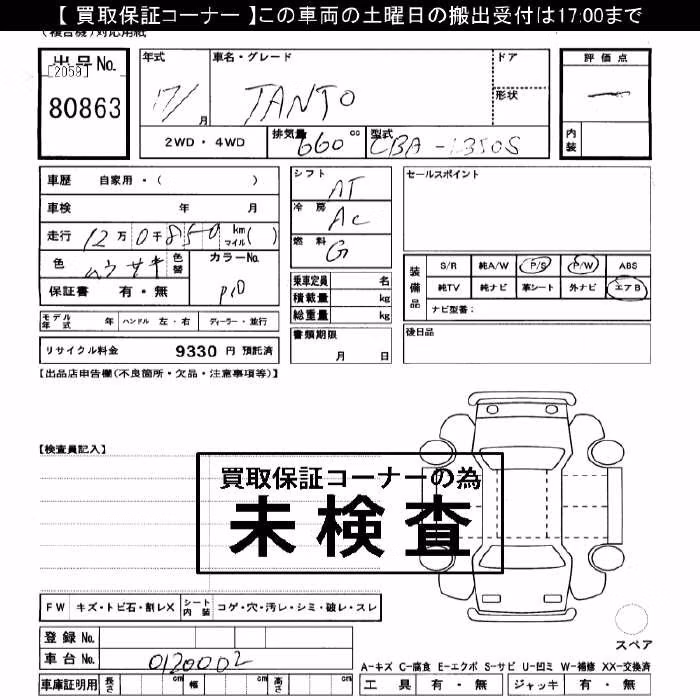 【 買取保証コーナー 】この車両の土曜日の搬出受付は17:00まで
出品No.
[2059]
80863
年式
17/
月
車名・グレード
TANTO
ドア
形状
評価点
内装
2WD・4WD
排気量 660 cc
型式 CBA-L350S
車歴 自家用・( )
車検 年 月
走行 12万 0千 850 km マイル ( )
色 ムラサキ 色替
カラーNo. P10
保証書 有・無
シフト AT
冷房 AC
燃料 G
乗車定員 名
積載量 kg
総重量 kg
セールスポイント
装備品
S/R 純A/W P/S P/W ABS
純TV 純ナビ 革シート 外ナビ エアB
ナビ型番:
モデル年式 年 ハンドル 左・右 ディーラー・並行
書類期限 月 日
後日品
リサイクル料金 9330 円 預託済
【出品店申告欄(不良箇所・欠品・注意事項等)】
【検査員記入】
買取保証コーナーの為
未検査
FW キズ・トビ石・割レX シート内装 コゲ・穴・汚レ・シミ・破レ・スレ
登録 No.
車台 No. 0120002
スペア
A-キズ C-腐食 E-エクボ S-サビ U-凹ミ W-補修 XX-交換済
車庫証明用 長さ cm 幅 cm 高さ cm
工具 有・無 ジャッキ 有・無